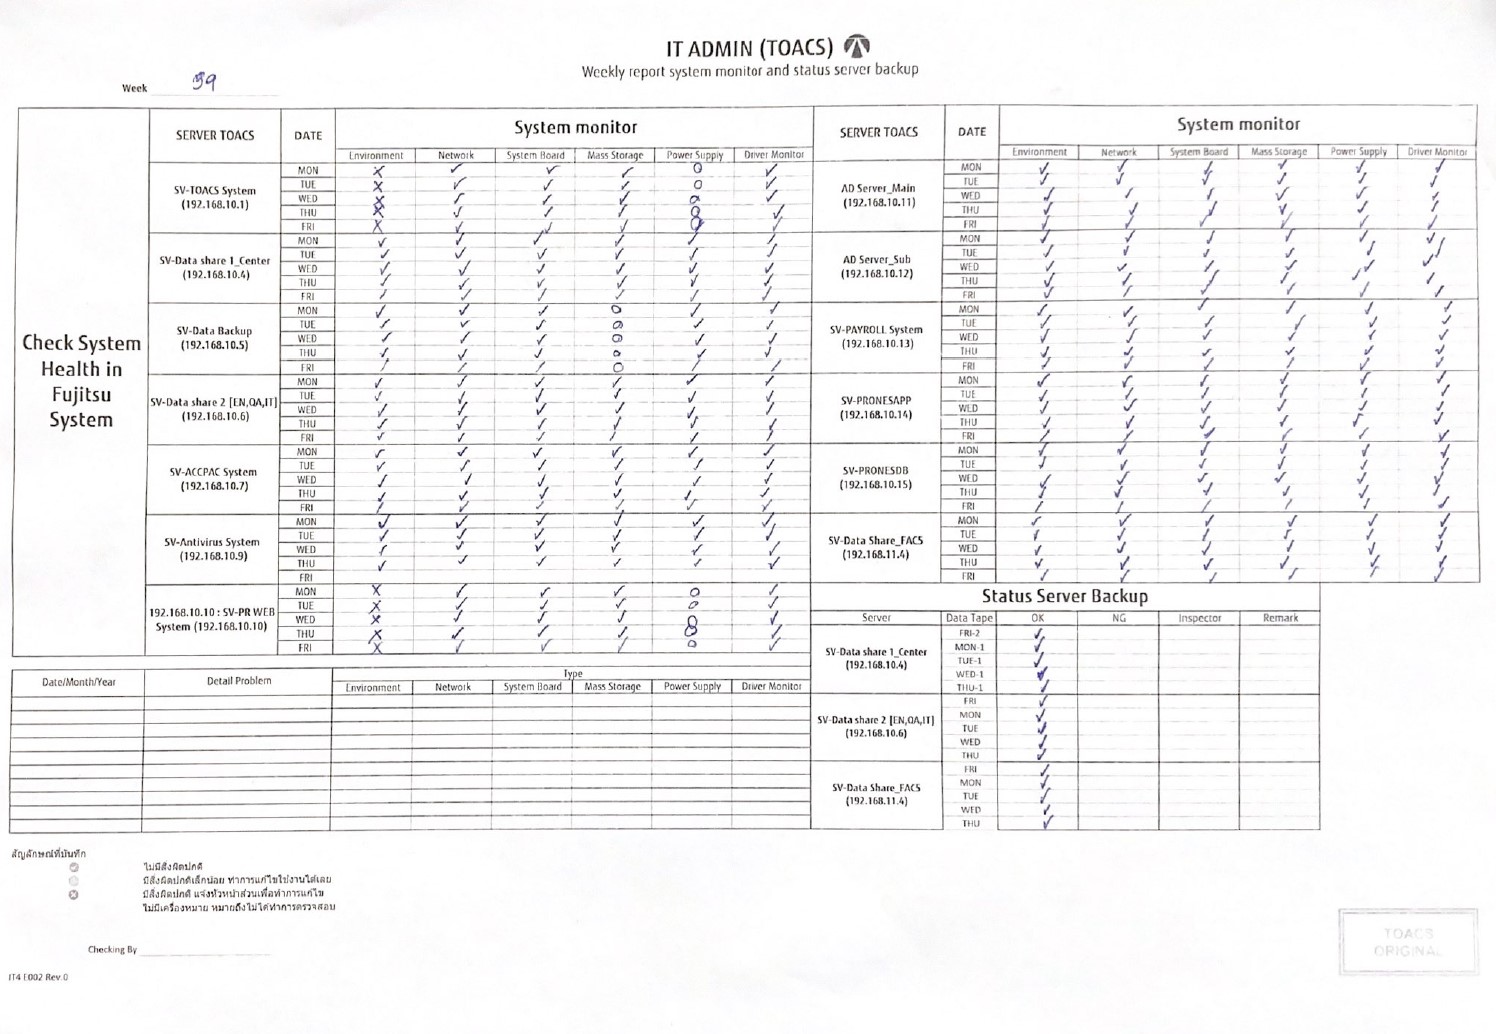 IT ADMIN (TOACS)
Weekly report system monitor and status server backup
Week 39
Check System Health in Fujitsu System
SERVER TOACS DATE System monitor
Environment Network System Board Mass Storage Power Supply Driver Monitor
SV-TOACS System (192.168.10.1)
MON X ✓ ✓ ✓ O ✓
TUE X ✓ ✓ ✓ O ✓
WED X ✓ ✓ ✓ O ✓
THU X ✓ ✓ ✓ O ✓
FRI X ✓ ✓ ✓ O ✓
SV-Data share 1_Center (192.168.10.4)
MON ✓ ✓ ✓ ✓ ✓ ✓
TUE ✓ ✓ ✓ ✓ ✓ ✓
WED ✓ ✓ ✓ ✓ ✓ ✓
THU ✓ ✓ ✓ ✓ ✓ ✓
FRI ✓ ✓ ✓ ✓ ✓ ✓
SV-Data Backup (192.168.10.5)
MON ✓ ✓ ✓ O ✓ ✓
TUE ✓ ✓ ✓ O ✓ ✓
WED ✓ ✓ ✓ O ✓ ✓
THU ✓ ✓ ✓ O ✓ ✓
FRI ✓ ✓ ✓ O ✓ ✓
SV-Data share 2 [EN,QA,IT] (192.168.10.6)
MON ✓ ✓ ✓ ✓ ✓ ✓
TUE ✓ ✓ ✓ ✓ ✓ ✓
WED ✓ ✓ ✓ ✓ ✓ ✓
THU ✓ ✓ ✓ ✓ ✓ ✓
FRI ✓ ✓ ✓ ✓ ✓ ✓
SV-ACCPAC System (192.168.10.7)
MON ✓ ✓ ✓ ✓ ✓ ✓
TUE ✓ ✓ ✓ ✓ ✓ ✓
WED ✓ ✓ ✓ ✓ ✓ ✓
THU ✓ ✓ ✓ ✓ ✓ ✓
FRI ✓ ✓ ✓ ✓ ✓ ✓
SV-Antivirus System (192.168.10.9)
MON ✓ ✓ ✓ ✓ ✓ ✓
TUE ✓ ✓ ✓ ✓ ✓ ✓
WED ✓ ✓ ✓ ✓ ✓ ✓
THU ✓ ✓ ✓ ✓ ✓ ✓
FRI
192.168.10.10 : SV-PR WEB System (192.168.10.10)
MON X ✓ ✓ ✓ O ✓
TUE X ✓ ✓ ✓ O ✓
WED X ✓ ✓ ✓ O ✓
THU X ✓ ✓ ✓ O ✓
FRI X ✓ ✓ ✓ O ✓
SERVER TOACS DATE System monitor
Environment Network System Board Mass Storage Power Supply Driver Monitor
AD Server_Main (192.168.10.11)
MON ✓ ✓ ✓ ✓ ✓ ✓
TUE ✓ ✓ ✓ ✓ ✓ ✓
WED ✓ ✓ ✓ ✓ ✓ ✓
THU ✓ ✓ ✓ ✓ ✓ ✓
FRI ✓ ✓ ✓ ✓ ✓ ✓
AD Server_Sub (192.168.10.12)
MON ✓ ✓ ✓ ✓ ✓ ✓
TUE ✓ ✓ ✓ ✓ ✓ ✓
WED ✓ ✓ ✓ ✓ ✓ ✓
THU ✓ ✓ ✓ ✓ ✓ ✓
FRI ✓ ✓ ✓ ✓ ✓ ✓
SV-PAYROLL System (192.168.10.13)
MON ✓ ✓ ✓ ✓ ✓ ✓
TUE ✓ ✓ ✓ ✓ ✓ ✓
WED ✓ ✓ ✓ ✓ ✓ ✓
THU ✓ ✓ ✓ ✓ ✓ ✓
FRI ✓ ✓ ✓ ✓ ✓ ✓
SV-PRONESAPP (192.168.10.14)
MON ✓ ✓ ✓ ✓ ✓ ✓
TUE ✓ ✓ ✓ ✓ ✓ ✓
WED ✓ ✓ ✓ ✓ ✓ ✓
THU ✓ ✓ ✓ ✓ ✓ ✓
FRI ✓ ✓ ✓ ✓ ✓ ✓
SV-PRONESDB (192.168.10.15)
MON ✓ ✓ ✓ ✓ ✓ ✓
TUE ✓ ✓ ✓ ✓ ✓ ✓
WED ✓ ✓ ✓ ✓ ✓ ✓
THU ✓ ✓ ✓ ✓ ✓ ✓
FRI ✓ ✓ ✓ ✓ ✓ ✓
SV-Data Share_FACS (192.168.11.4)
MON ✓ ✓ ✓ ✓ ✓ ✓
TUE ✓ ✓ ✓ ✓ ✓ ✓
WED ✓ ✓ ✓ ✓ ✓ ✓
THU ✓ ✓ ✓ ✓ ✓ ✓
FRI ✓ ✓ ✓ ✓ ✓ ✓
Status Server Backup
Server Data Tape OK NG Inspector Remark
SV-Data share 1_Center (192.168.10.4)
FRI-2 ✓
MON-1 ✓
TUE-1 ✓
WED-1 ✓
THU-1 ✓
SV-Data share 2 [EN,QA,IT] (192.168.10.6)
FRI ✓
MON ✓
TUE ✓
WED ✓
THU ✓
SV-Data Share_FACS (192.168.11.4)
FRI ✓
MON ✓
TUE ✓
WED ✓
THU ✓
Date/Month/Year Detail Problem Type
Environment Network System Board Mass Storage Power Supply Driver Monitor
สัญลักษณ์ที่บันทึก
ไม่มีสิ่งผิดปกติ
มีสิ่งผิดปกติเล็กน้อย ทำการแก้ไขใช้งานได้เลย
มีสิ่งผิดปกติ แจ้งหัวหน้าส่วนเพื่อทำการแก้ไข
ไม่มีเครื่องหมาย หมายถึงไม่ได้ทำการตรวจสอบ
Checking By
IT4 F002 Rev.0
TOACS
ORIGINAL